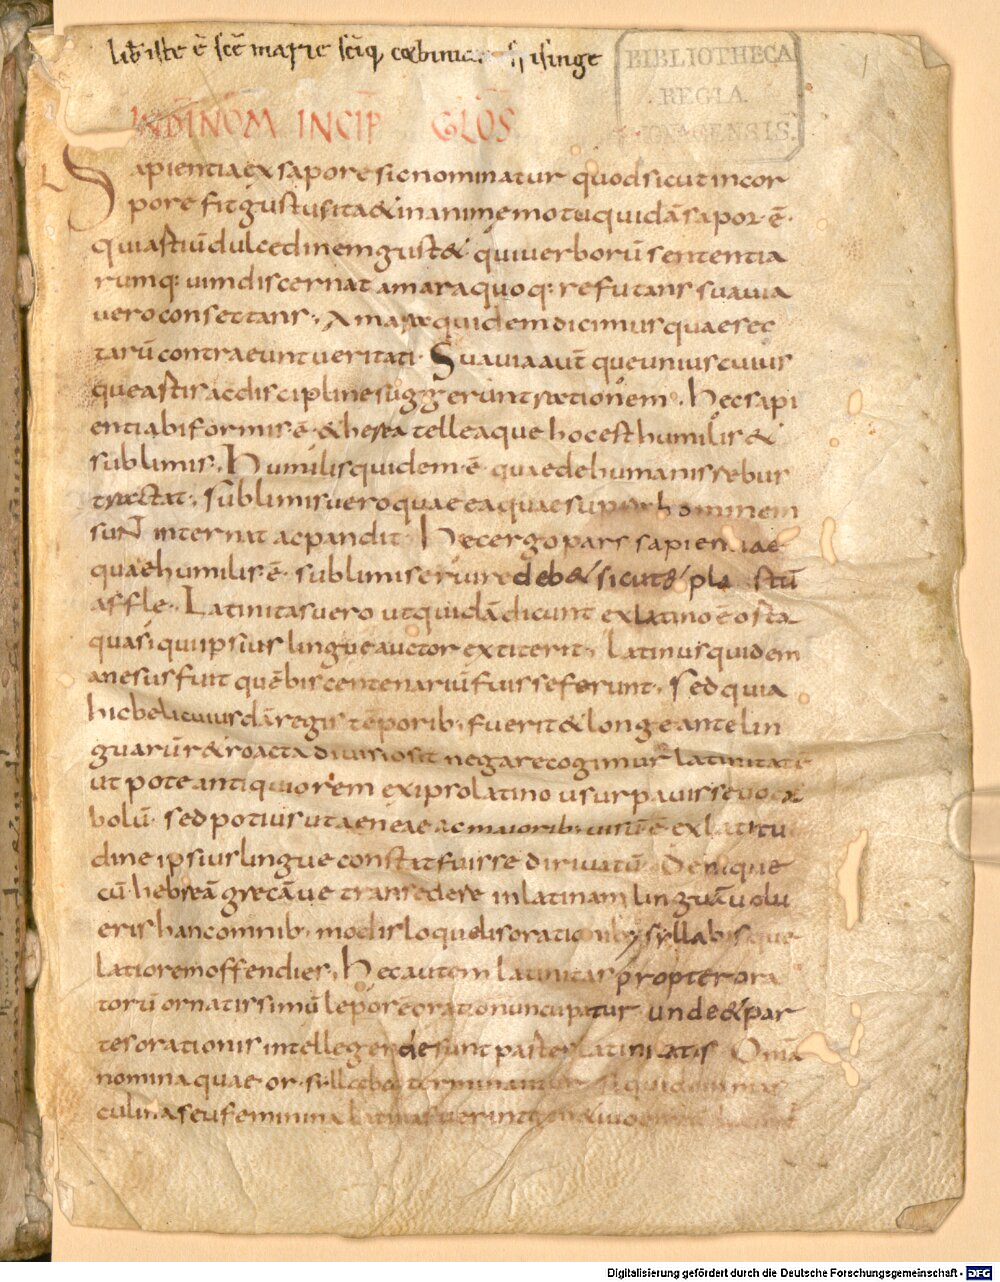 lib̄ iste ē sc̄e marie sc̄iq, corbiniani frisinge
BIBLIOTHECA
REGIA
MONACENSIS.
IN DĪ NOM̄ INCIP̄ GLOS̄
Sapientia ex sapore sic nominatur quod sicut in cor
pore fit gustus ita & in anime motu quidā sapor ē.
qui dulcedinem gust& qui verborū sententia
rumq: vim discernat amara quoq: refutans suavia
vero consectans. Amara quidem dicimus quae sec
tarū contraeunt veritati. Suavia aut̄ que unius cuius
que artis ac discipline suggerunt rationem. Hec sapi
entia biformis ē. & hec hoc est humilis &
sublimis. Humilis quidem ē. quae de humanis rebus
tractat. sublimis vero quae ea quae super hominem
sunt internat ac pandit. Hec ergo pars sapientiae
quae humilis ē. sublimi servire deb& sicut & pla stū
affle. Latinitas vero ut quidā dicunt ex latino ē orta
quasi qui ipsius lingue auctor extiterit. Latinus quidem
an esus fuit quē bis centenariū fuisse ferunt. Sed quia
hic belicuius dā regis tēporib; fuerit & longe ante lin
guarū r&roacta divisio sit negare cogimur latinitatis
ut pote antiquiorem ex ipso latino usurpavisse voca
bolū. sed potius ut aeneae ac maiorib; visū ē ex latitu
dine ipsius lingue constat fuisse dirivatū. Denique
cū hebreā grecāve transedere in latinam linguā volu
eris hanc omnib; modis loquelis orationib; syllabisque
latiorem offendies. Hec autem latinitas propter ora
torū ornatissimū lepore oratio nuncupatur unde & par
tes orationis intellegende sunt partes latinitatis. Omā
nomina quae or syllaba terminantur si quidem mas
culina seu feminina latina fuerint
Digitalisierung gefördert durch die Deutsche Forschungsgemeinschaft - DFG